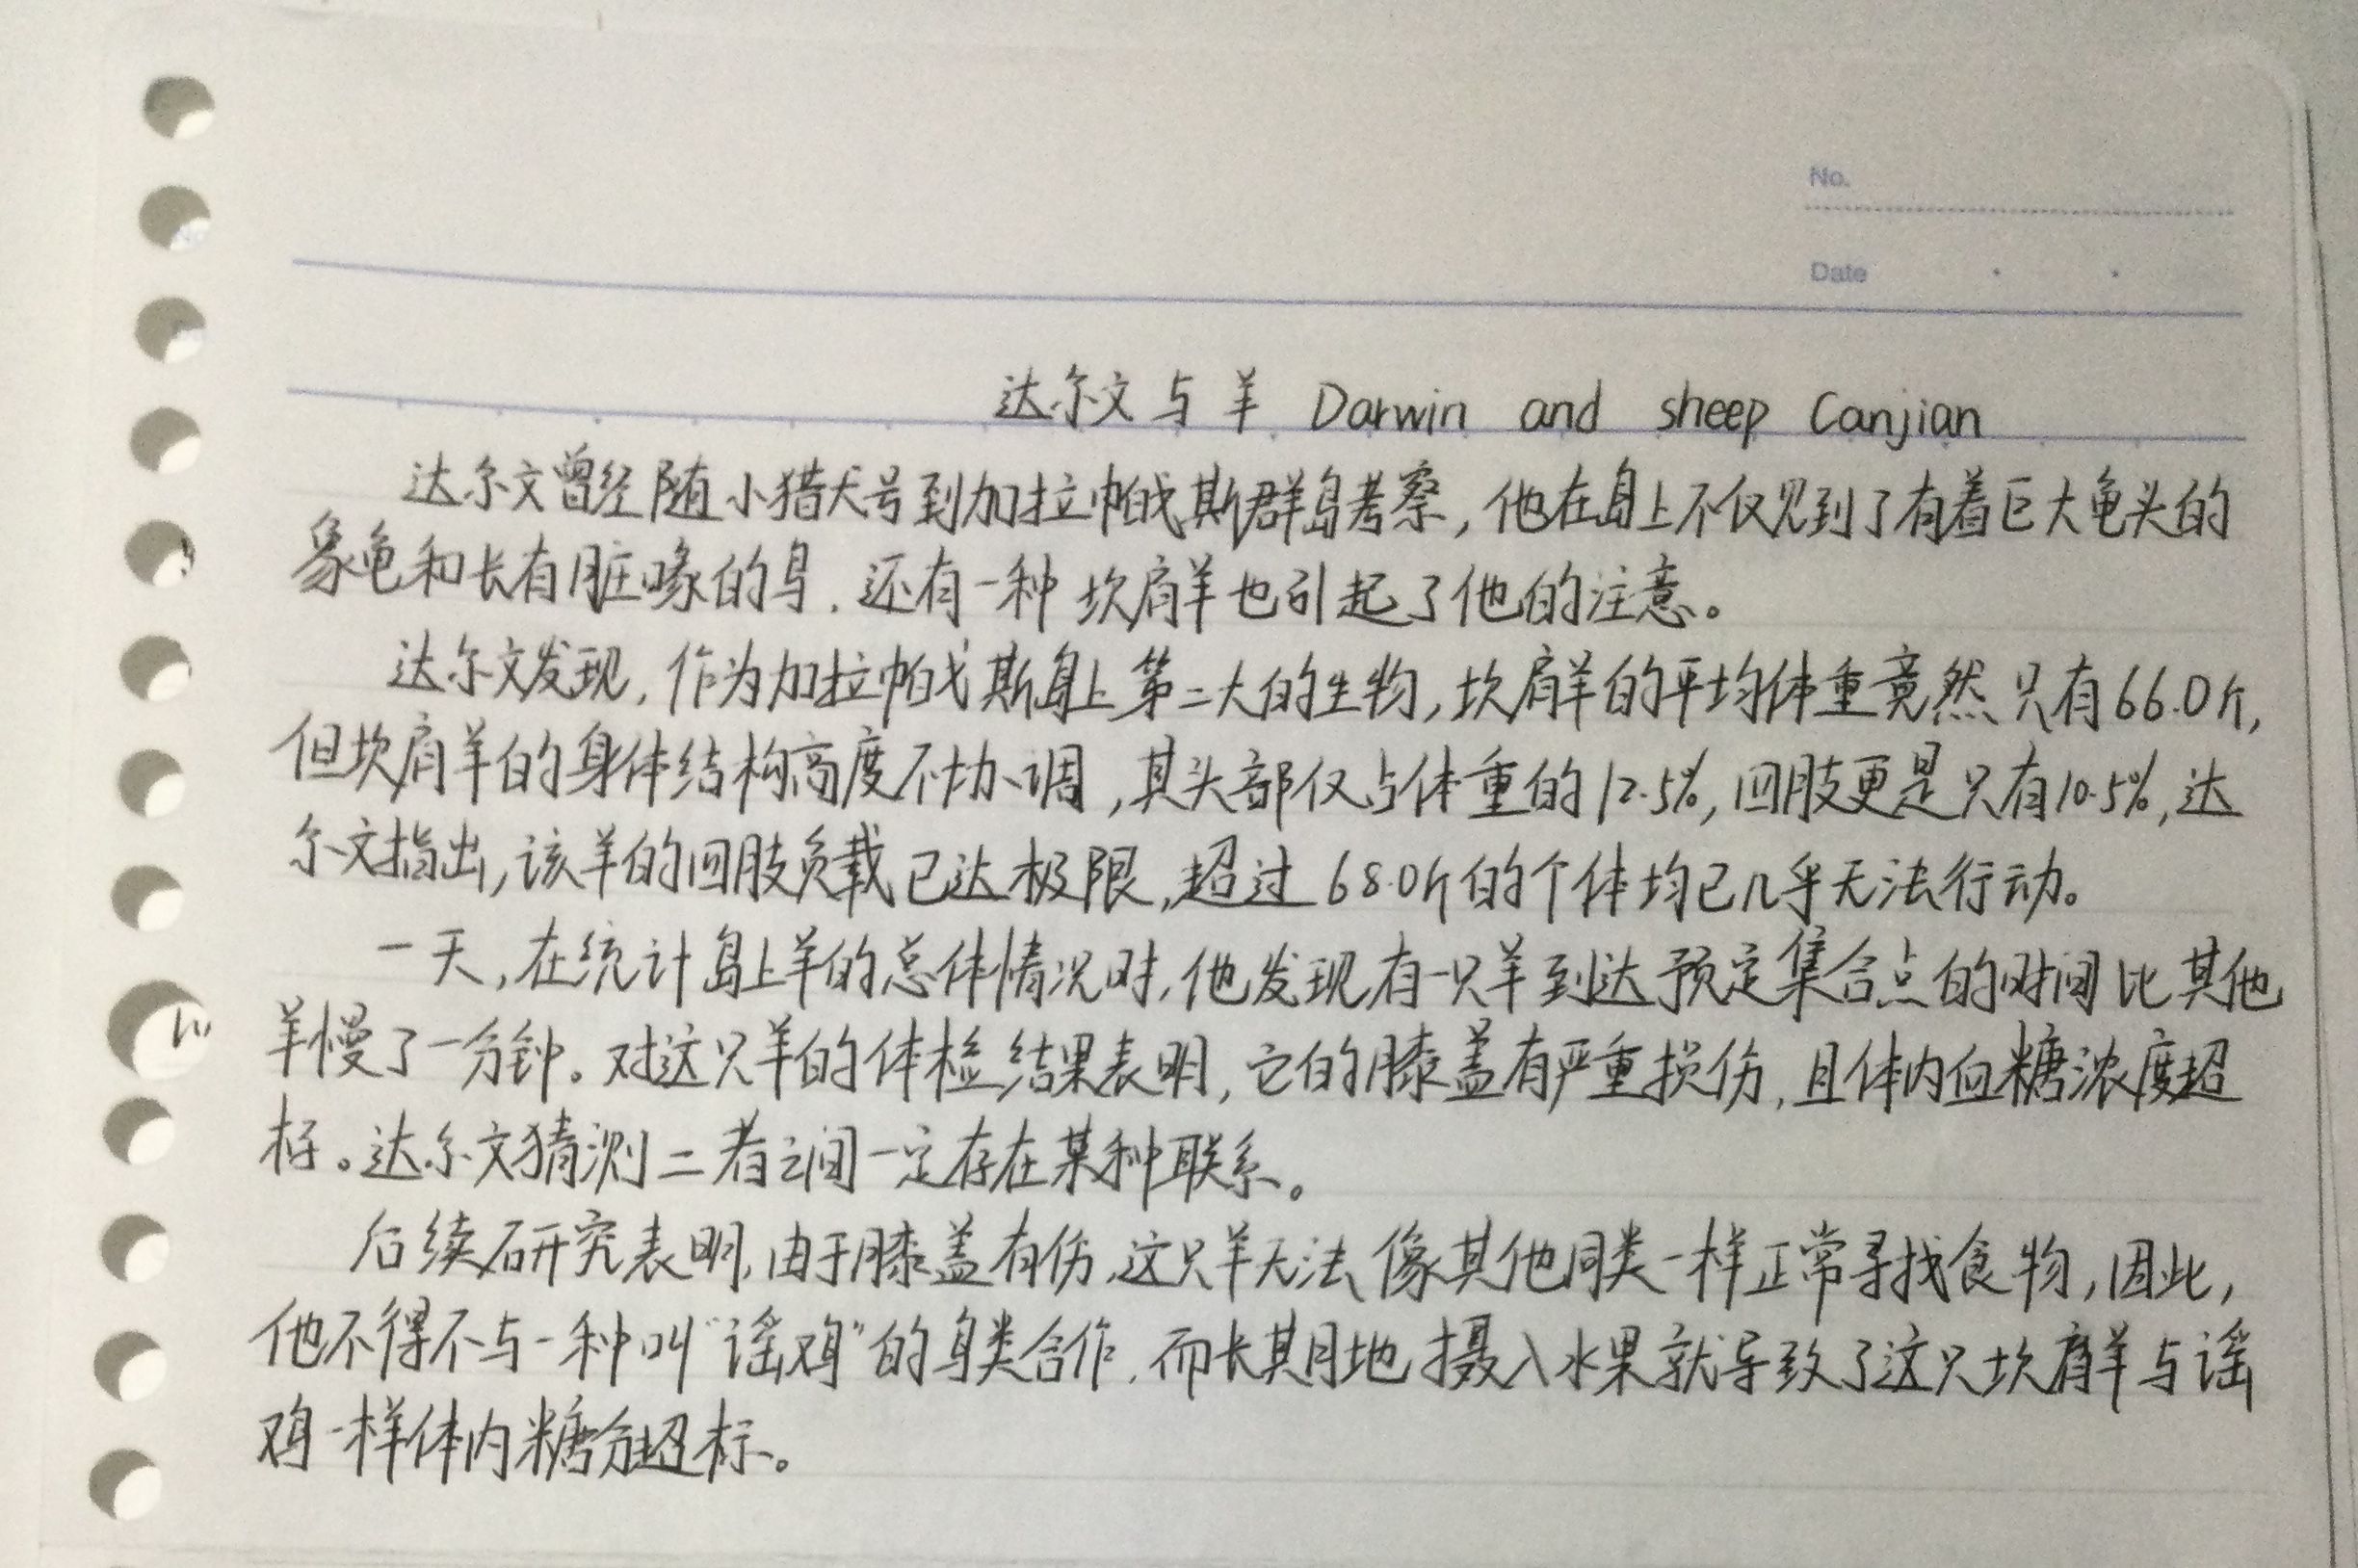 No.
Date
达尔文与羊 Darwin and sheep Canjian
达尔文曾经随小猎犬号到加拉帕戈斯群岛考察,他在岛上不仅见到了有着巨大龟头的
象龟和长有脏喙的鸟,还有一种坎肩羊也引起了他的注意。
达尔文发现,作为加拉帕戈斯岛上第二大的生物,坎肩羊的平均体重竟然只有66.0斤,
但坎肩羊的身体结构高度不协调,其头部仅占体重的12.5%,四肢更是只有10.5%,达
尔文指出,该羊的四肢负载已达极限,超过68.0斤的个体均已几乎无法行动。
一天,在统计岛上羊的总体情况时,他发现有一只羊到达预定集合点的时间比其他
羊慢了一分钟。对这只羊的体检结果表明,它的膝盖有严重损伤,且体内血糖浓度超
标。达尔文猜测二者之间一定存在某种联系。
后续研究表明,由于膝盖有伤,这只羊无法像其他同类一样正常寻找食物,因此,
他不得不与一种叫“谣鸡”的鸟类合作,而长期地摄入水果就导致了这只坎肩羊与谣
鸡一样体内糖分超标。